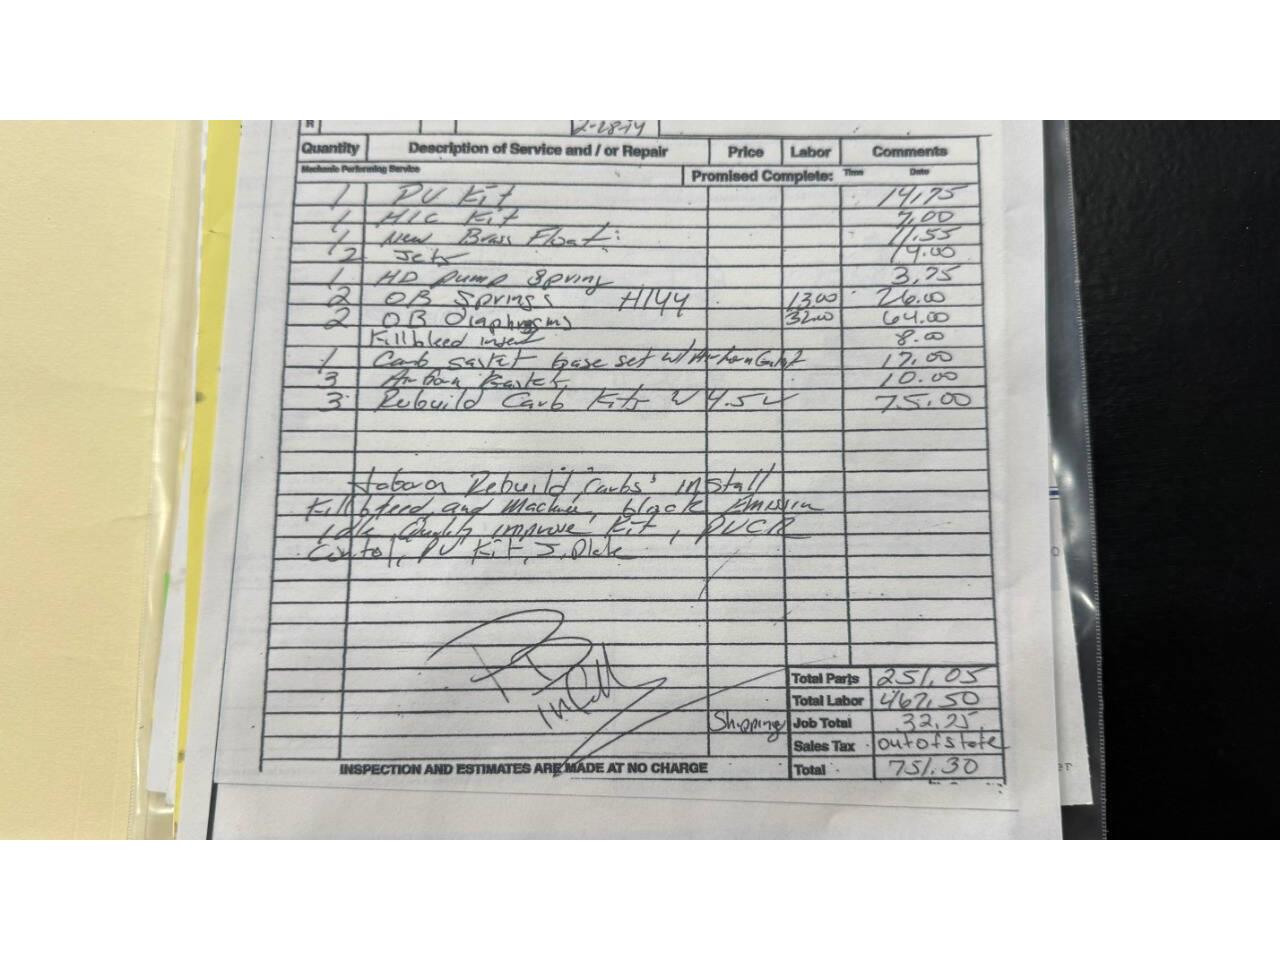 R
2-28-14
Quantity Description of Service and / or Repair Price Labor Comments
Mechanic Performing Service Promised Complete: Time Date
1 PV Kit 14.75
1 HIC Kit 7.00
1 New Brass Float 11.55
2 Jets 14.00
1 HD pump Spring 3.75
2 OB Springs H144 13.00 26.00
2 OB Diaphragms 32.00 64.00
Killbleed insert 8.00
1 Carb gasket base set w/ 17.00
3 10.00
3 Rebuild Carb Kits W 4.5 75.00
Rebuild Carbs install
Killbleed and Machine, block Emission
Idle Quality improve Kit, PVCR
Control, PV Kit, S. Plate
Total Parts 251.05
Total Labor 467.50
Shipping Job Total 32.75
Sales Tax out of state
INSPECTION AND ESTIMATES ARE MADE AT NO CHARGE Total 751.30